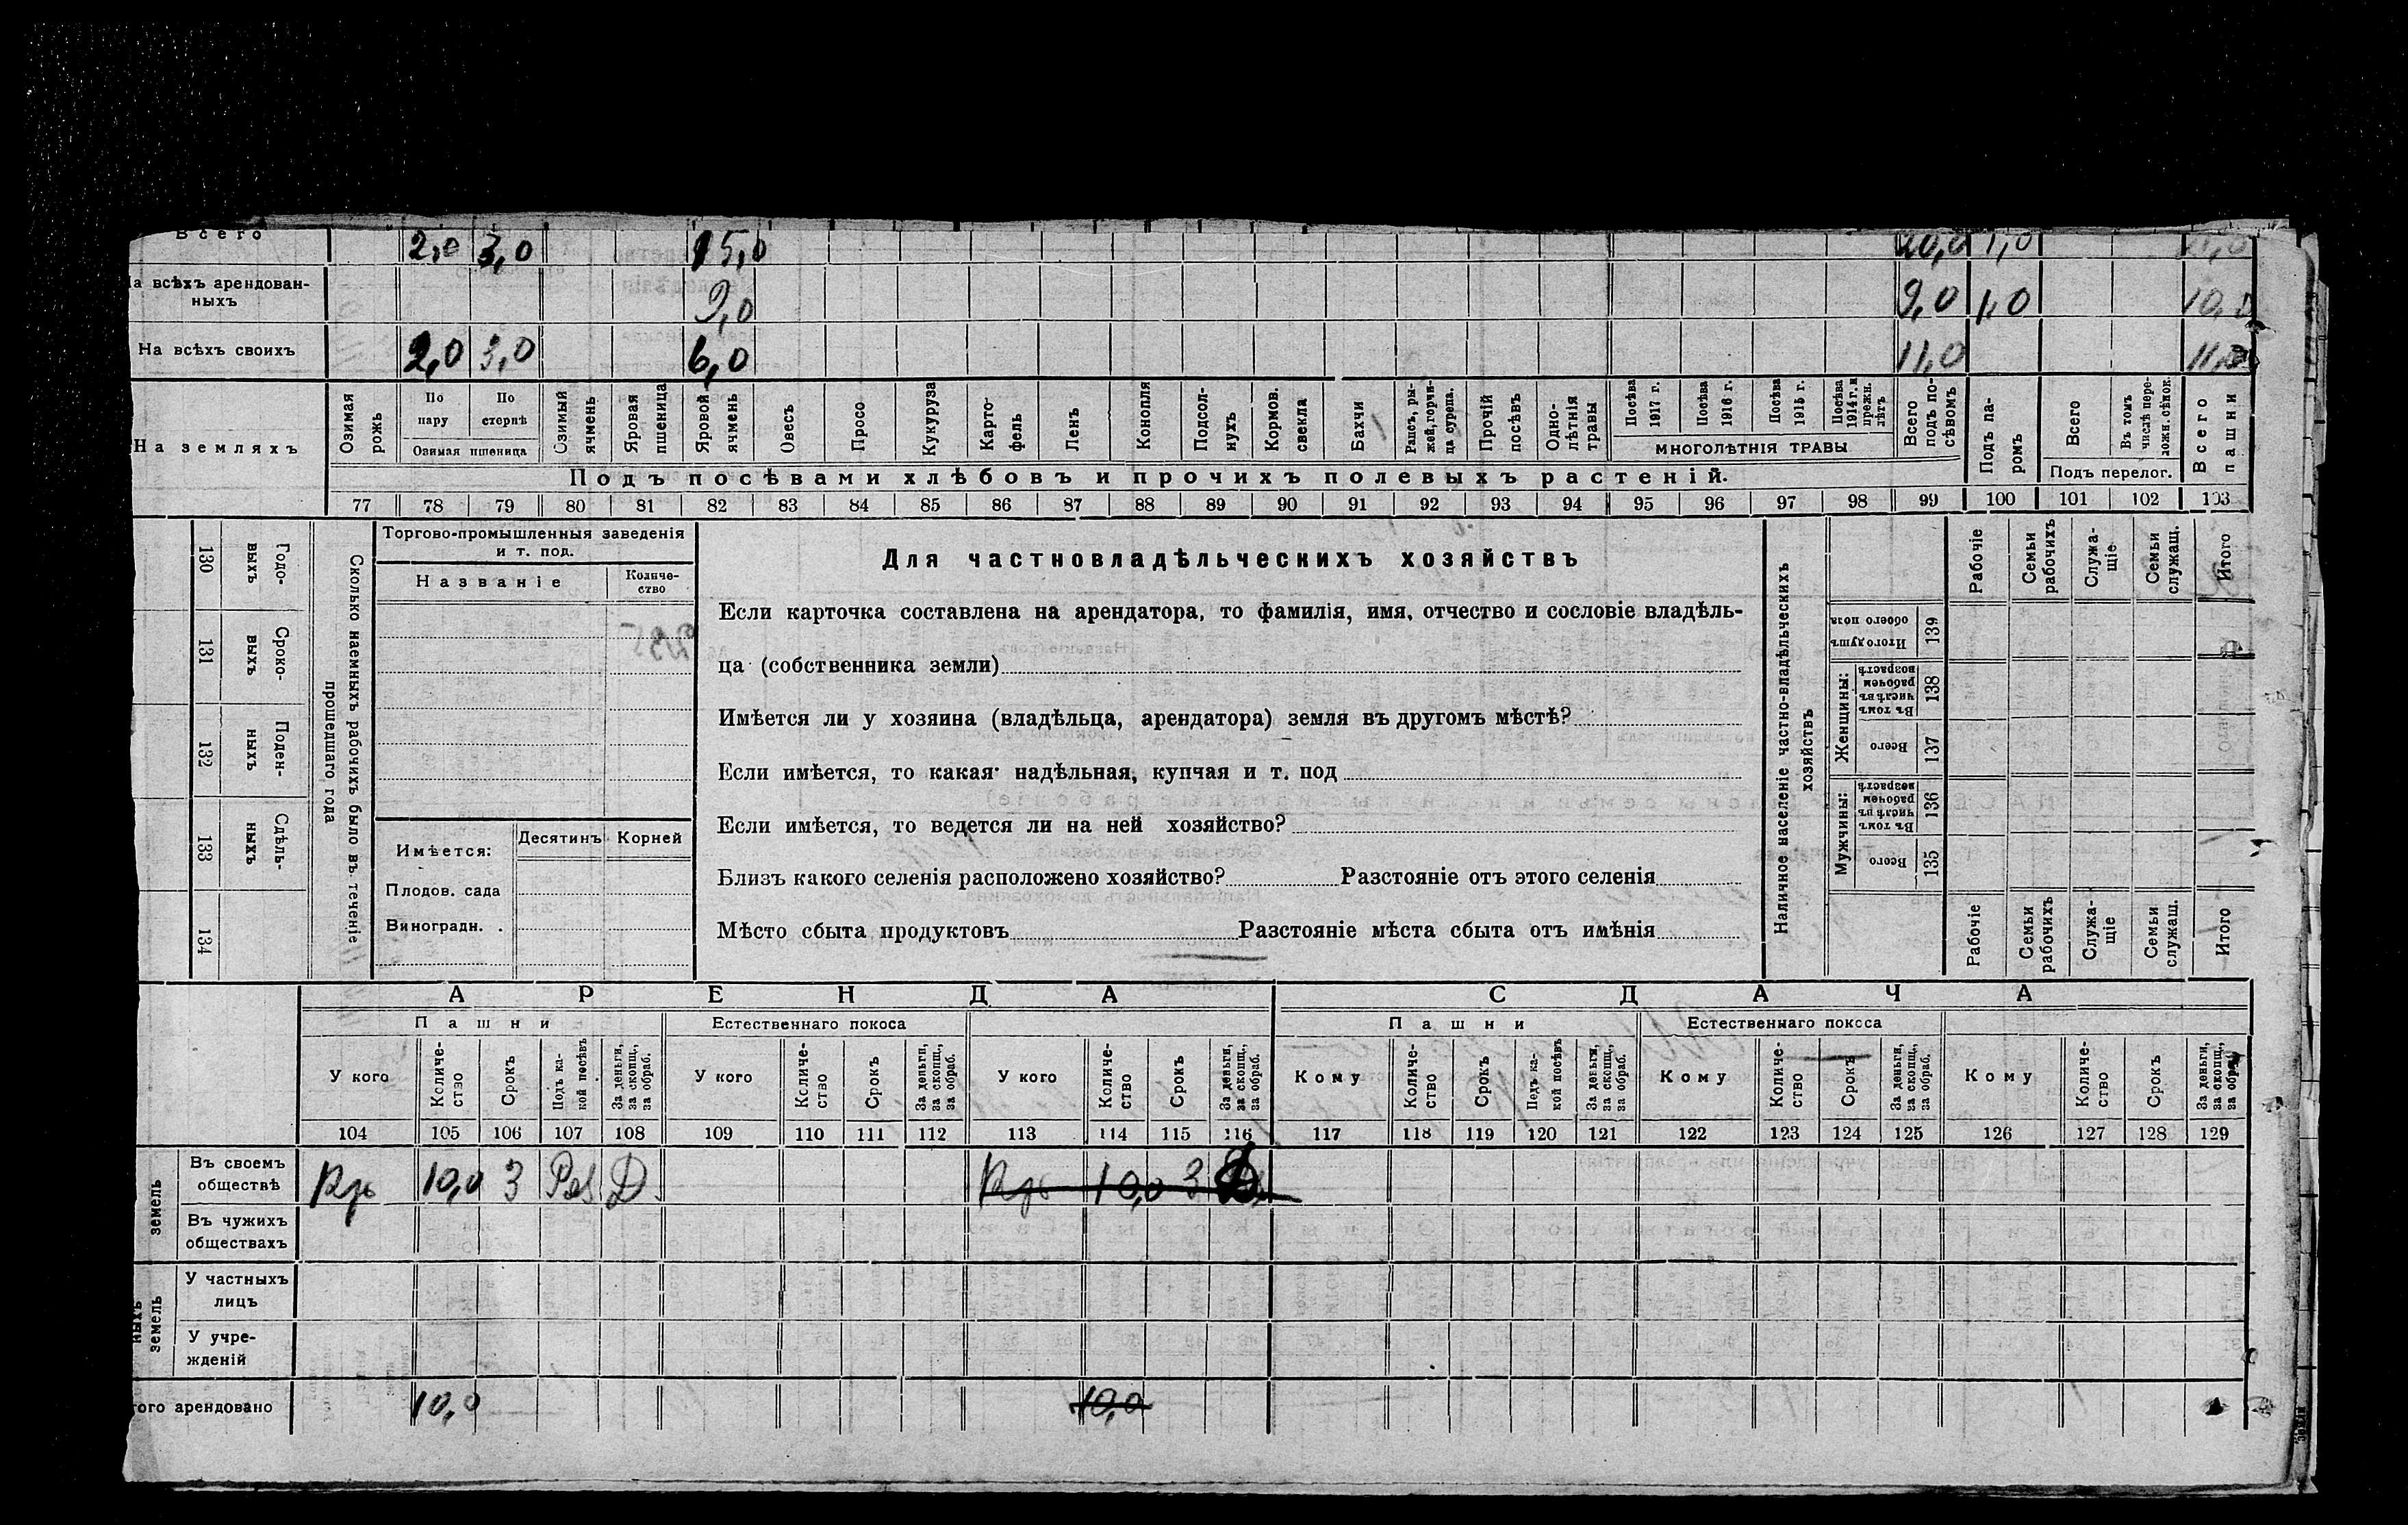 Всего 2,0 3,0 15,0 20,0 1,0
а всѣхъ арендован-
ныхъ 9,0 9,0 1,0 10,0
На всѣхъ своихъ 2,0 3,0 6,0 11,0 11,0
На земляхъ
Озимая рожь
По пару
По стернѣ
Озимая пшеница
Озимый ячмень
Яровая пшеница
Яровой ячмень
Овесъ
Просо
Кукуруза
Карто-
фель
Ленъ
Конопля
Подсол-
нухъ
Кормов.
свекла
Бахчи
Рапсъ, ры-
жей, горчи-
ца сурепа.
Прочій
посѣвъ
Одно-
лѣтнія
травы
Посѣва
1917 г.
Посѣва
1916 г.
Посѣва
1915 г.
Посѣва
1914 г. и
прежн.
лѣтъ
МНОГОЛѢТНІЯ ТРАВЫ
Всего
подъ по-
сѣвомъ
Подъ па-
ромъ
Всего
Въ томъ
числѣ пере-
ложн. сѣнок.
Подъ перелог.
Всего
пашни
Подъ посѣвами хлѣбовъ и прочихъ полевыхъ растеній.
77 78 79 80 81 82 83 84 85 86 87 88 89 90 91 92 93 94 95 96 97 98 99 100 101 102 103
130 Годо-
выхъ
131 Сроко-
выхъ
132 Поден-
ныхъ
133 Сдѣль-
ныхъ
134
Сколько наемныхъ рабочихъ было въ теченіе
прошедшаго года
Торгово-промышленныя заведенія
и т. под.
Названіе
Количе-
ство
Имѣется:
Десятинъ Корней
Плодов. сада
Виноградн. .
Для частновладѣльческихъ хозяйствъ
Если карточка составлена на арендатора, то фамилія, имя, отчество и сословіе владѣль-
ца (собственника земли)
Имѣется ли у хозяина (владѣльца, арендатора) земля въ другомъ мѣстѣ?
Если имѣется, то какая надѣльная, купчая и т. под
Если имѣется, то ведется ли на ней хозяйство?
Близъ какого селенія расположено хозяйство? Разстояніе отъ этого селенія
Мѣсто сбыта продуктовъ Разстояніе мѣста сбыта отъ имѣнія
Наличное населеніе частно-владѣльческихъ
хозяйствъ
Рабочіе
Семьи
рабочихъ
Служа-
щіе
Семьи
служащ.
Итого
Итого душъ
обоего пола
139
Женщины:
Въ томъ
числѣ въ
рабочемъ
возрастѣ
138
Всего
137
Мужчины:
Въ томъ
числѣ въ
рабочемъ
возрастѣ
136
Всего
135
Рабочіе
Семьи
рабочихъ
Служа-
щіе
Семьи
служащ.
Итого
АРЕНДА СДАЧА
Пашни Естественнаго покоса Пашни Естественнаго покоса
У кого
Количе-
ство
Срокъ
Подъ ка-
кой посѣвъ
За деньги,
за скопщ.,
за обраб.
У кого
Количе-
ство
Срокъ
За деньги,
за скопщ.,
за обраб.
У кого
Количе-
ство
Срокъ
За деньги,
за скопщ.,
за обраб.
Кому
Количе-
ство
Срокъ
Подъ ка-
кой посѣвъ
За деньги,
за скопщ.,
за обраб.
Кому
Количе-
ство
Срокъ
За деньги,
за скопщ.,
за обраб.
Кому
Количе-
ство
Срокъ
За деньги,
за скопщ.,
за обраб.
104 105 106 107 108 109 110 111 112 113 114 115 116 117 118 119 120 121 122 123 124 125 126 127 128 129
земель
Въ своемъ
обществѣ 10,0 3 Д 10,0 3
Въ чужихъ
обществахъ
ныхъ
земель
У частныхъ
лицъ
У учре-
жденій
того арендовано 10,0 10,0